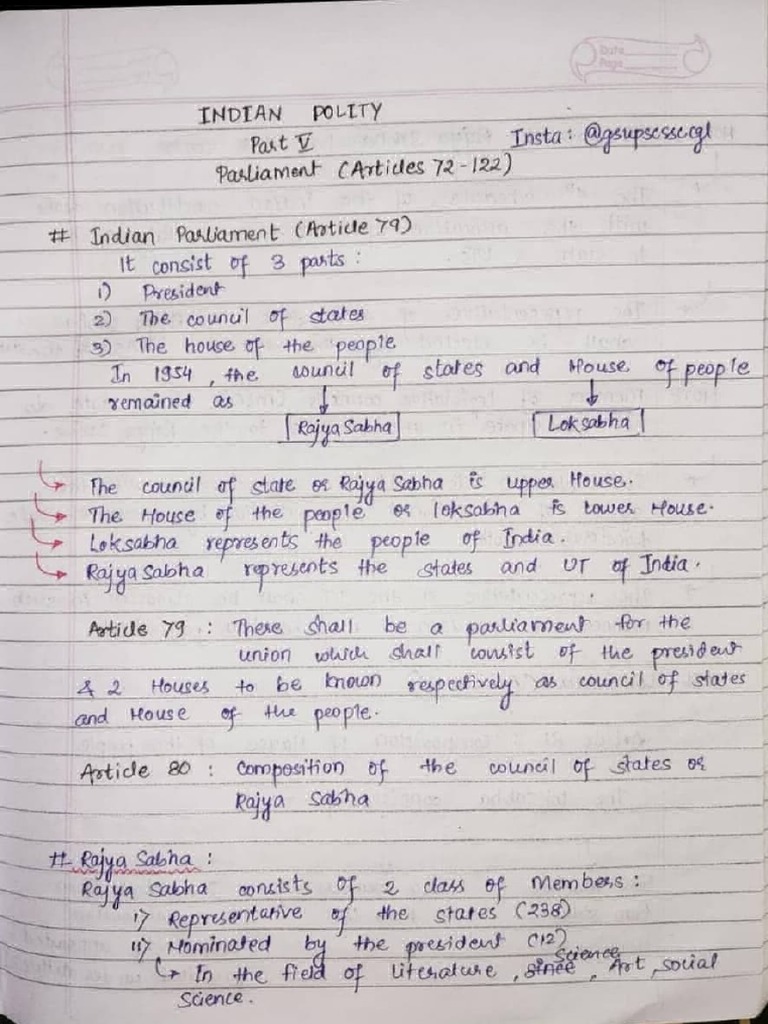 Date
Page
INDIAN POLITY
Part V
Insta: @gsupscssccgl
Parliament (Articles 72-122)
# Indian Parliament (Article 79)
It consist of 3 parts :
1) President
2) The council of states
3) The house of the people
In 1954, the council of states and House of people
remained as
Rajya Sabha
Loksabha
The council of state or Rajya Sabha is upper House.
The House of the people or loksabha is lower House.
Loksabha represents the people of India.
Rajya Sabha represents the states and UT of India.
Article 79 : There shall be a parliament for the
union which shall consist of the president
& 2 Houses to be known respectively as council of states
and House of the people.
Article 80 : Composition of the council of states or
Rajya Sabha
# Rajya Sabha :
Rajya Sabha consists of 2 class of Members :
i) Representative of the states (238)
ii) Nominated by the president (12)
In the field of literature, Science, Art, social
Science.